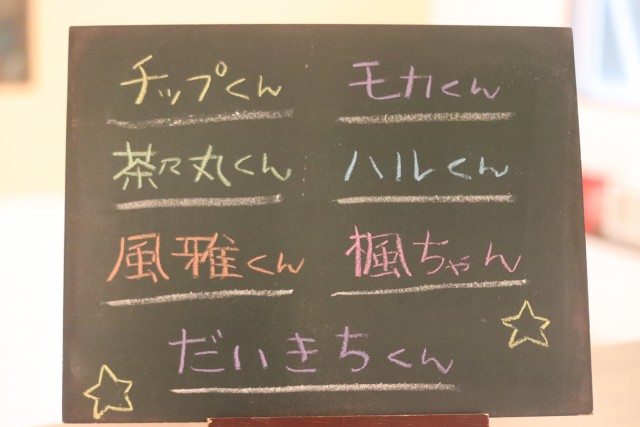 チップくん モカくん
茶々丸くん ハルくん
風雅くん 楓ちゃん
だいきちくん